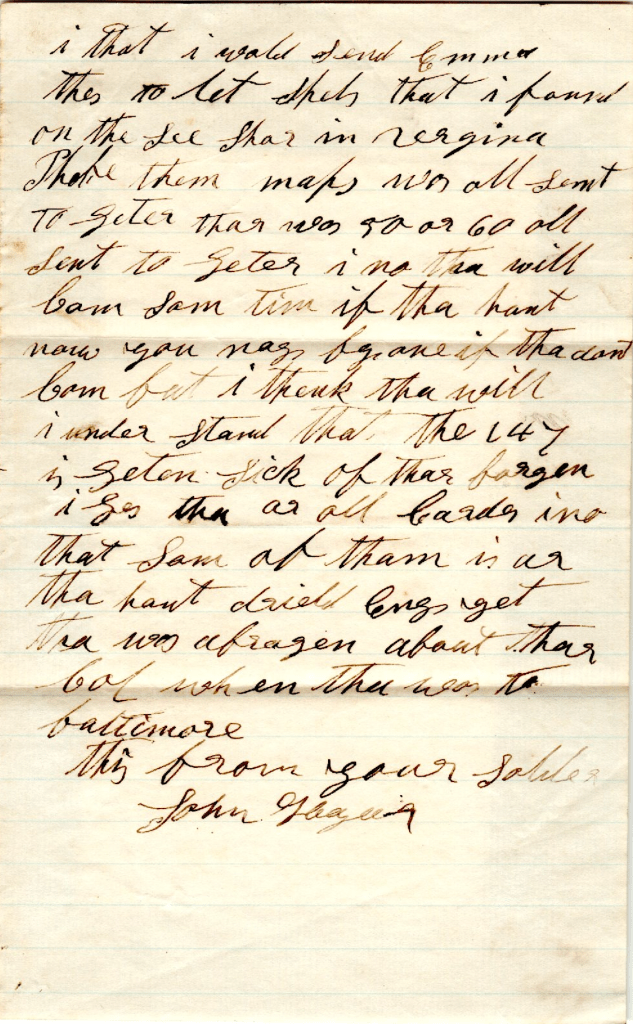 i that i wold send Emma
thes to let Shels that i found
on the See Shor in vergina
Phebe them maps was all sent
to Geter thar was 50 or 60 all
sent to Geter i no tha will
Com som tim if tha hant
now you nags if tha dont
Com but i thenk tha will
i under stand that the 147
is Geten Sick of thar bargen
i Ges tha ar all Cards ino
that som of tham is ar
tha hant drield yet
tha was abragen about thar
Col when tha was to
baltimore
this from your Solder
John